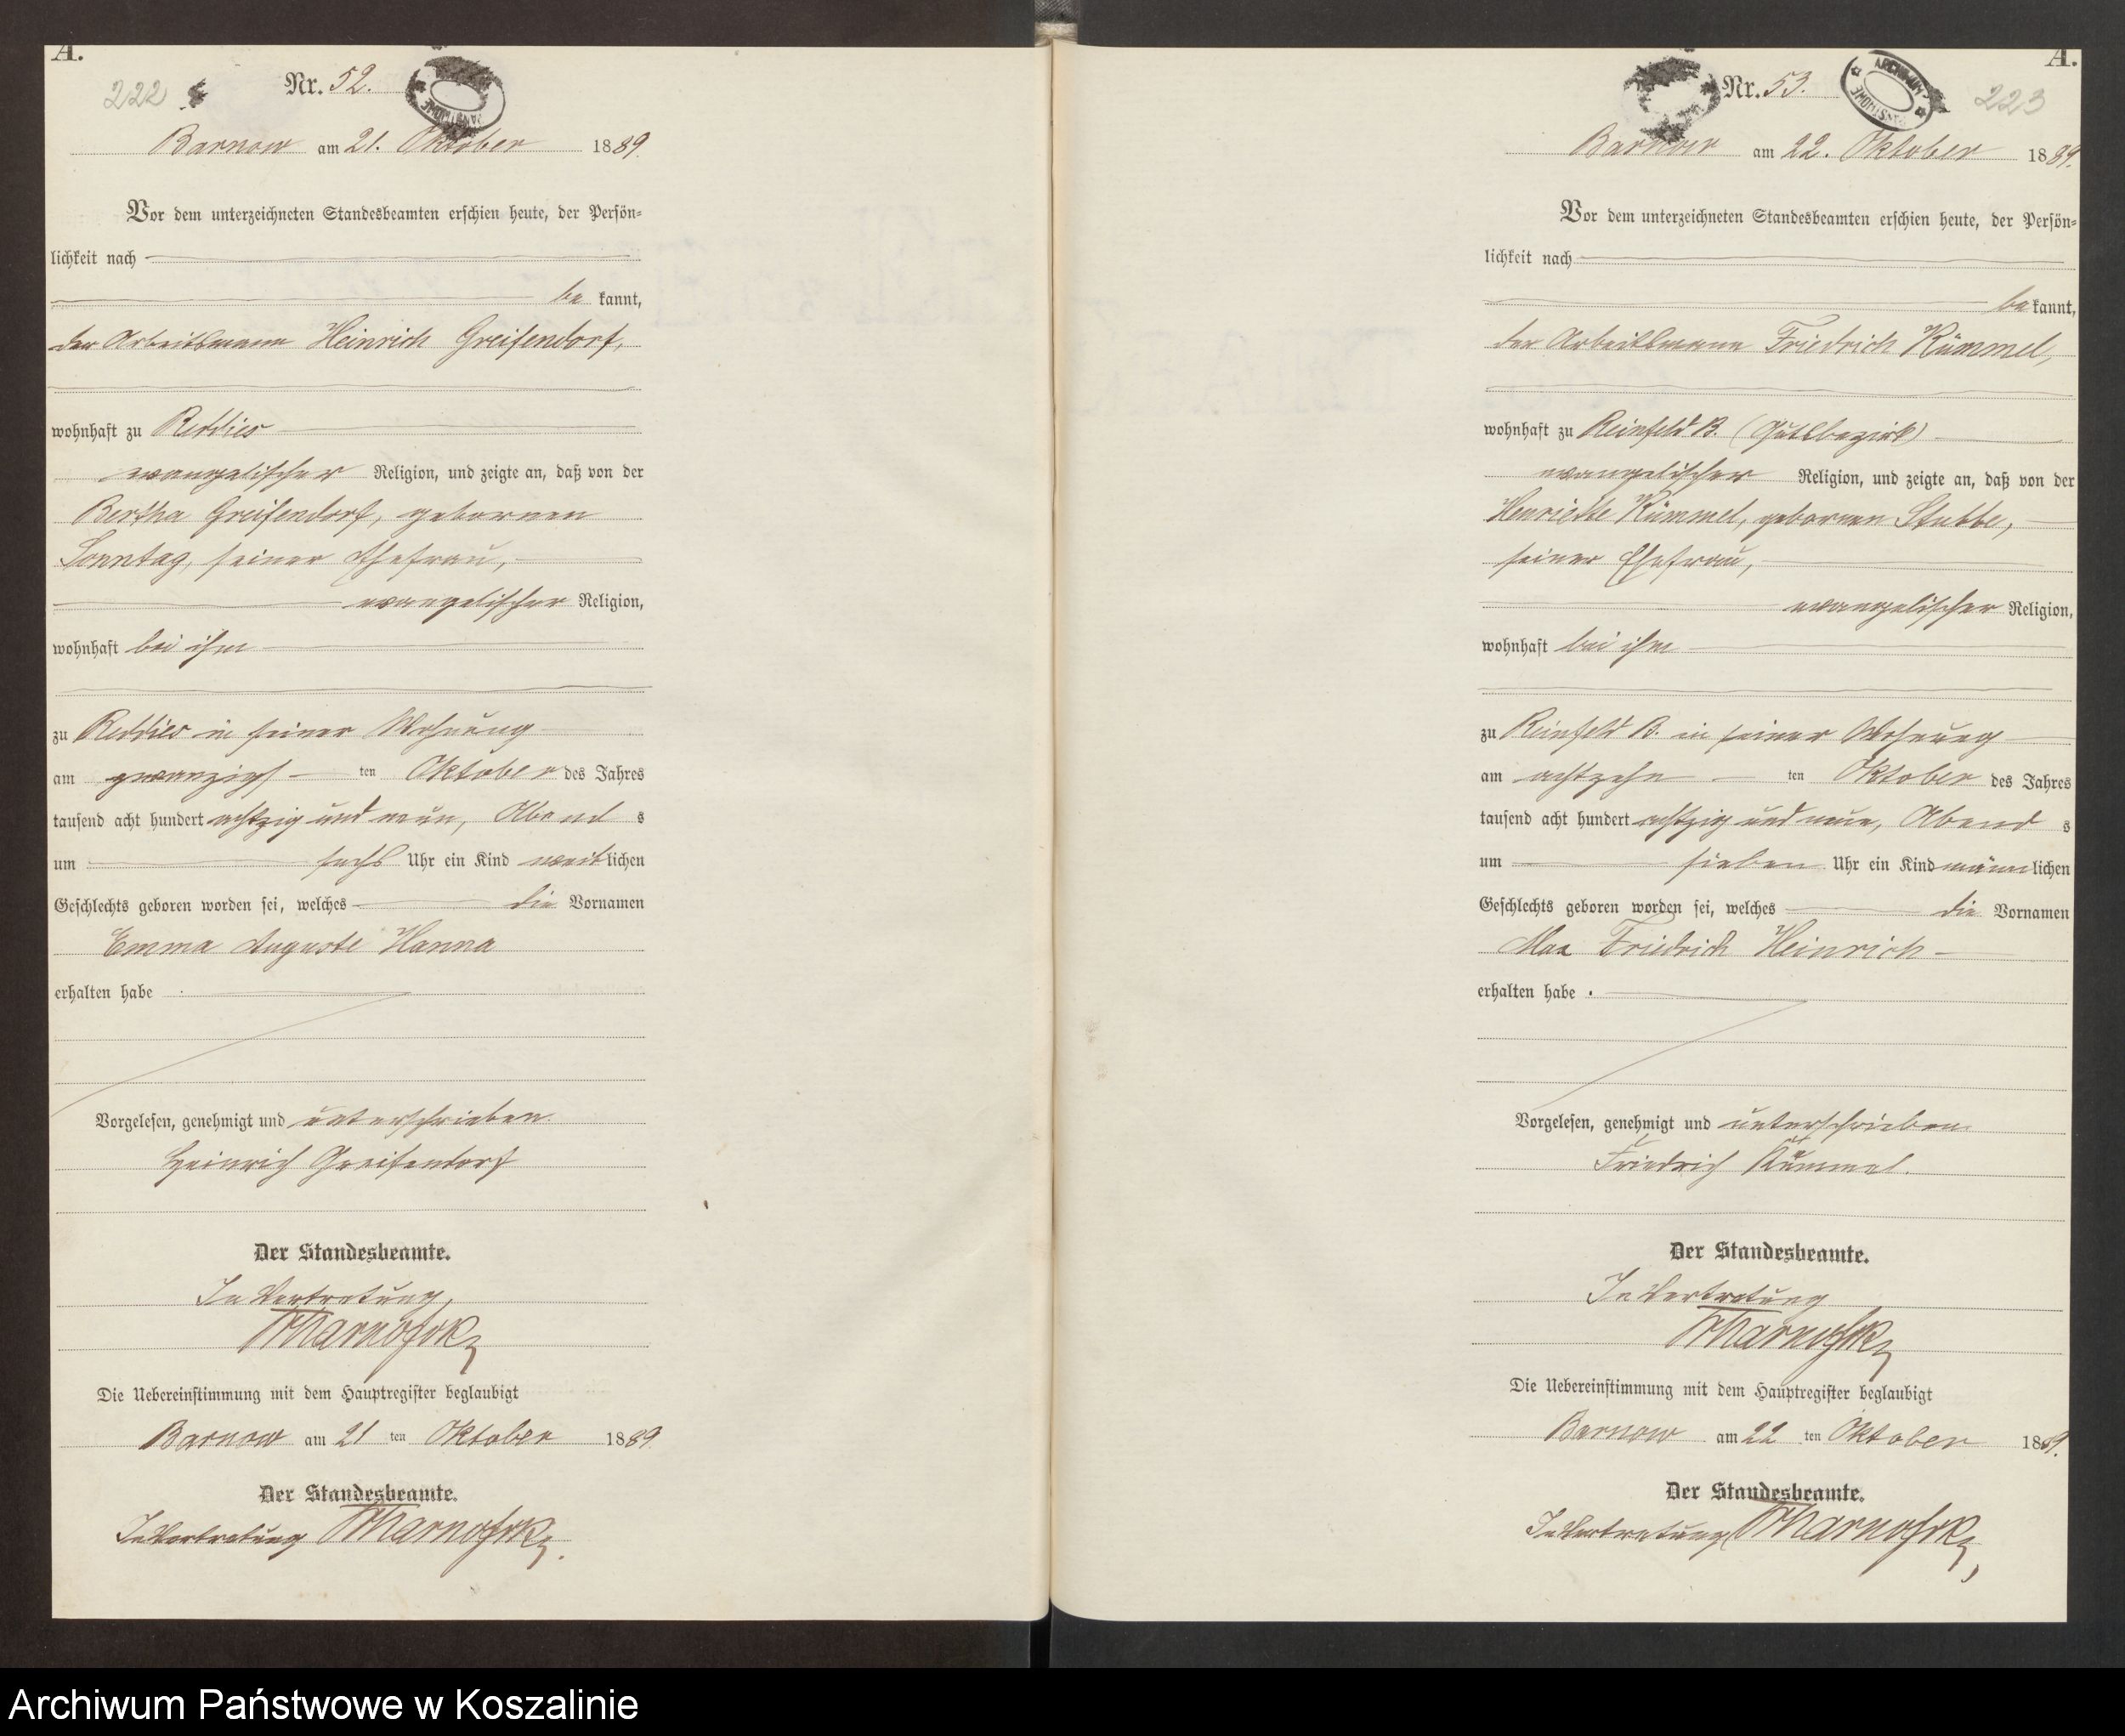 A.
222
Nr. 52.
Barnow am 21. Oktober 1889.
Vor dem unterzeichneten Standesbeamten erschien heute, der Persön-
lichkeit nach
be kannt,
der Arbeitsmann Heinrich Greifendorf,
wohnhaft zu Reddies
evangelischer Religion, und zeigte an, daß von der
Bertha Greifendorf, gebornen
Sonntag, seiner Ehefrau,
evangelischer Religion,
wohnhaft bei ihm
zu Reddies in seiner Wohnung
am zwanzigs ten Oktober des Jahres
tausend acht hundert achtzig und neun, Abend s
um sechs Uhr ein Kind weiblichen
Geschlechts geboren worden sei, welches die Vornamen
Emma Auguste Hanna
erhalten habe
Vorgelesen, genehmigt und unterschrieben.
Heinrich Greifendorf
Der Standesbeamte.
In Vertretung,
Die Uebereinstimmung mit dem Hauptregister beglaubigt
Barnow am 21 ten Oktober 1889.
Der Standesbeamte.
In Vertretung
A.
Nr. 53.
ARCHIWUM
223
Barnow am 22. Oktober 1889.
Vor dem unterzeichneten Standesbeamten erschien heute, der Persön-
lichkeit nach
be kannt,
der Arbeitsmann Friedrich Kümmel,
wohnhaft zu Reinfeld B. (Gutsbezirk)
evangelischer Religion, und zeigte an, daß von der
Henriette Kümmel, gebornen Stubbe,
seiner Ehefrau,
evangelischer Religion,
wohnhaft bei ihm
zu Reinfeld B. in seiner Wohnung
am achtzehn ten Oktober des Jahres
tausend acht hundert achtzig und neun, Abend s
um sieben Uhr ein Kind männlichen
Geschlechts geboren worden sei, welches die Vornamen
Max Friedrich Heinrich
erhalten habe.
Vorgelesen, genehmigt und unterschrieben.
Friedrich Kümmel.
Der Standesbeamte.
In Vertretung
Die Uebereinstimmung mit dem Hauptregister beglaubigt
Barnow am 22 ten Oktober 1889.
Der Standesbeamte.
In Vertretung
Archiwum Państwowe w Koszalinie